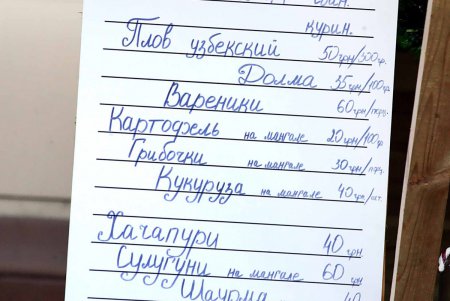 курин.
Плов узбекский 50 грн/300гр.
Долма 35 грн/100гр.
Вареники 60 грн/порц.
Картофель на мангале 20 грн/100гр
Грибочки на мангале 30 грн/порц.
Кукуруза на мангале 40 грн/шт.
Хачапури 40 грн
Сулугуни на мангале 60 грн
Шаурма